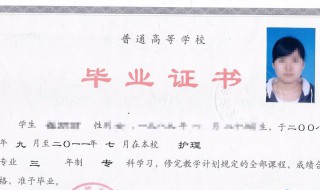 普通高等学校
毕业证书
学生 性别 一九八九年 月 生,于二〇〇
年 九 月至二〇一一年 七 月在本校 护理
专业 三 年制 专 科学习,修完教学计划规定的全部课程,成绩合
格,准予毕业。